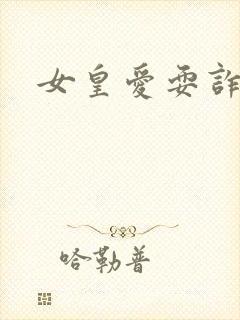 女皇愛耍詐
哈勒普